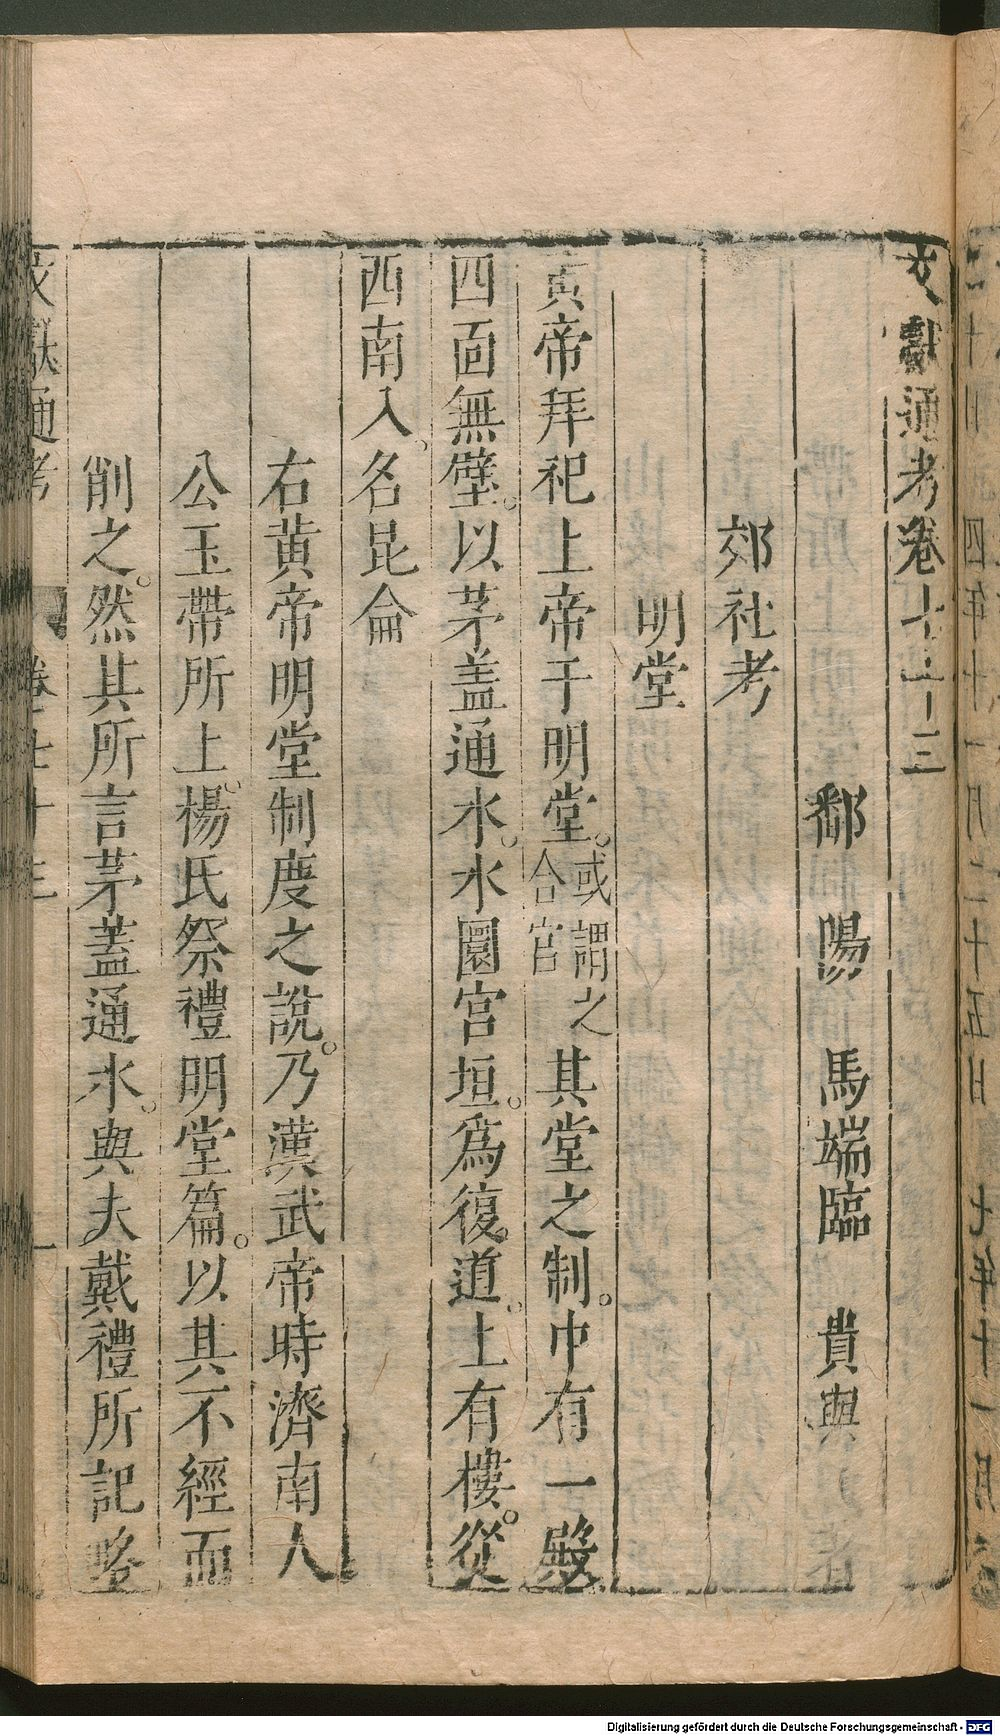 文獻通考卷七十三
鄱陽馬端臨貴與
郊社考
明堂
黃帝拜祀上帝于明堂。或謂之合宮其堂之制。中有一殿
四面無壁。以茅盖通水。水圜宮垣。爲復道。上有樓。從
西南入。名昆侖
右黃帝明堂制度之說。乃漢武帝時濟南人
公玉帶所上。楊氏祭禮明堂篇。以其不經而
削之。然其所言茅蓋通水。與夫戴禮所記略
文獻通考 卷七十三 一
Digitalisierung gefördert durch die Deutsche Forschungsgemeinschaft - DFG